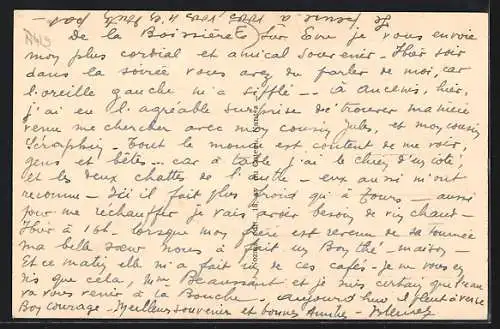 De la Boissière sur Èvre je vous envoie
mon plus cordial et amical souvenir - Hier soir
dans la soirée vous avez du parler de moi, car
l'oreille gauche m'a sifflé - à Ancenis, hier,
j'ai eu l'agréable surprise de trouver ma nièce
venue me chercher avec mon cousin Jules, et mon cousin
Séraphin - Tout le monde est content de me voir,
gens et bêtes... car à table j'ai le chien d'un côté
et les deux chattes de l'autre - eux aussi m'ont
reconnue - Ici il fait plus froid qu'à Tours - aussi
pour me réchauffer je vais avoir besoin de vin chaud -
Hier à 16h. lorsque mon frère est revenu de sa tournée
ma belle sœur nous a fait un Bon thé - maison -
Et ce matin elle m'a fait un de ces cafés - je ne vous en
dis que cela, Mme Beaussant et je suis certain que l'eau
va vous venir à la Bouche - aujourd'hui il pleut à verse
Bon courage - Meilleurs souvenirs et bonnes amitiés -
Je pense à vous